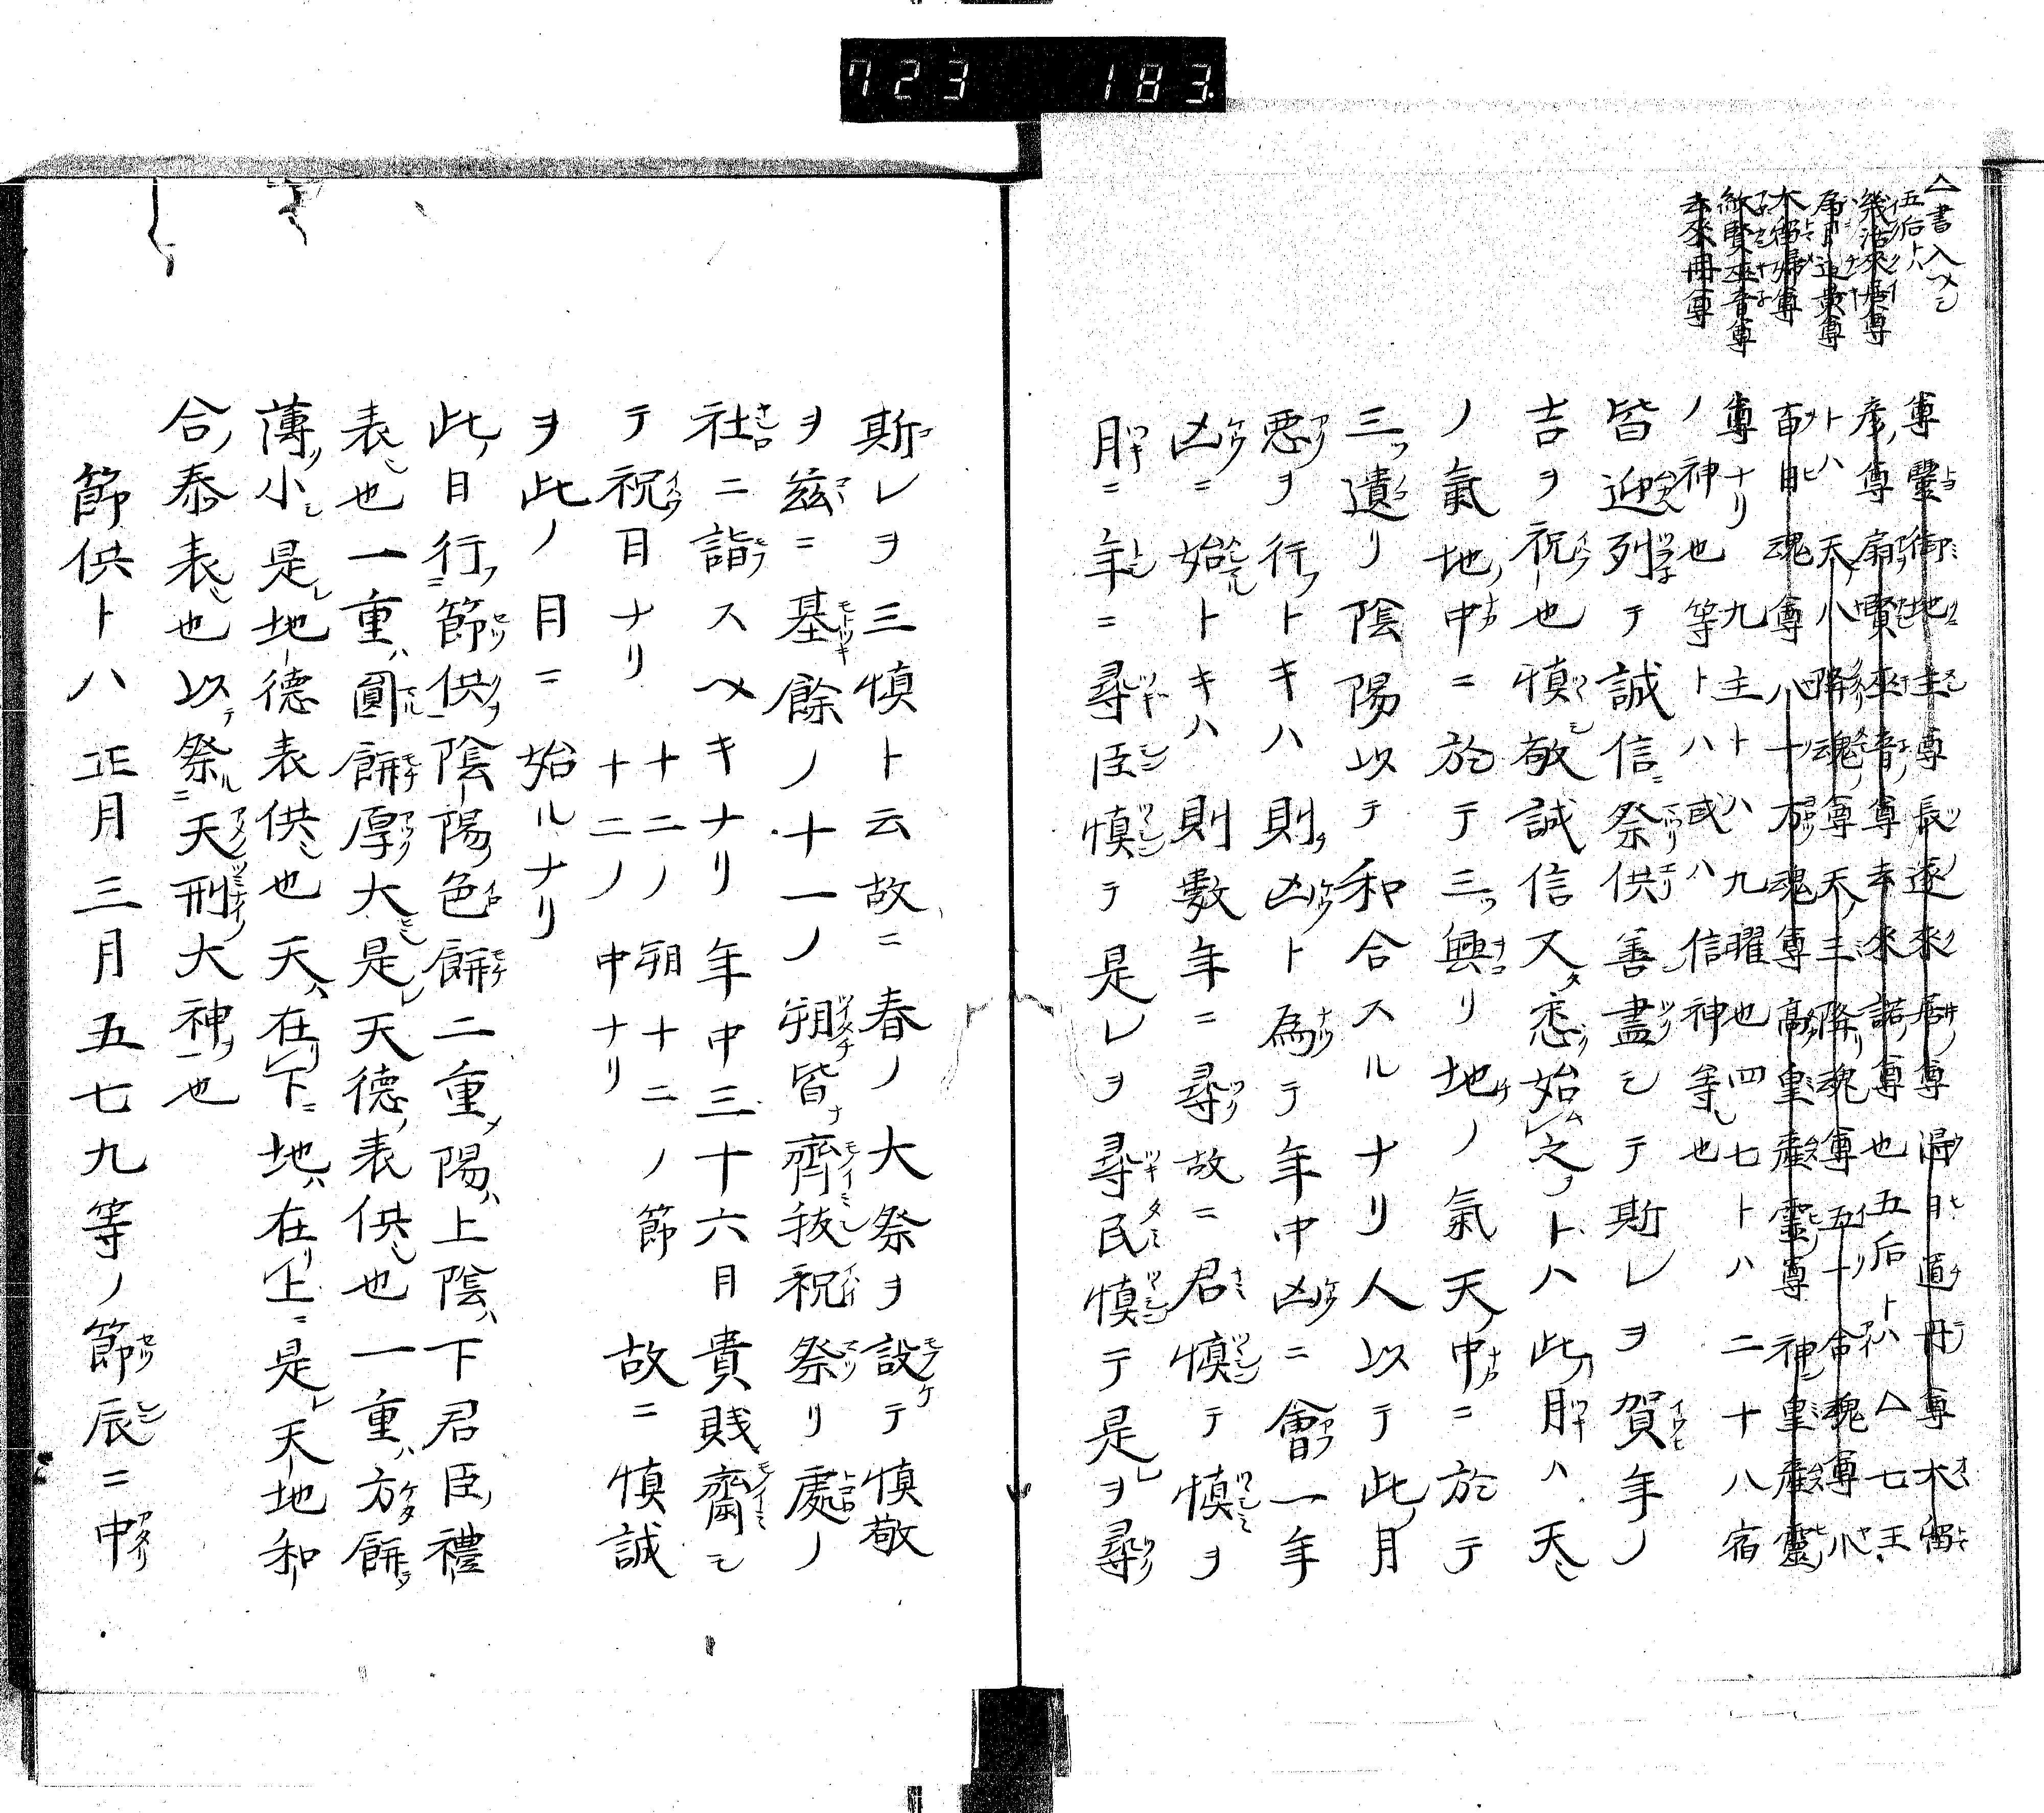 723 183.
△書入ヘシ
五后トハ
尊豐御地主尊長逐來居尊𣷹日道丹尊木畄
彦尊扇賢巫音尊去來諾尊也五后トハ△七王
トハ天八降魂尊天三降魂尊五十合魂尊八
百日魂尊八十万魂尊高皇產靈尊神皇產靈
尊ナリ九主トハ九曜也四七トハ二十八宿
ノ神也等トハ或ハ信神等也
皆迎列テ誠信祭供善盡シテ斯レヲ賀年ノ
吉ヲ祝也慎敬誠信又悉始之トハ此月ハ天
ノ氣地中ニ於テ三興リ地ノ氣天中ニ於テ
三遺リ陰陽以テ和合スルナリ人以テ此月
惡ヲ行トキハ則凶ト為テ年中凶ニ會一年
凶ニ始トキハ則數年ニ尋故ニ君慎テ慎ヲ
月ニ年ニ尋臣慎テ是レヲ尋民慎テ是ヲ尋
斯レヲ三慎ト云故ニ春ノ大祭ヲ設テ慎敬
ヲ茲ニ基餘ノ十一ノ朔皆齊祓祝祭リ處ノ
社ニ詣スヘキナリ年中三十六月貴賎齋シ
テ祝日ナリ十二ノ朔十二ノ節
十二ノ中ナリ故ニ慎誠
ヲ此ノ月ニ始ルナリ
此日行節供陰陽色餅二重陽上陰下君臣禮
表也一重圓餅厚大是天德表供也一重方餅
薄小是地德表供也天在下地在上是天地和
合泰表也以祭天刑大神也
節供トハ正月三月五七九等ノ節辰ニ中